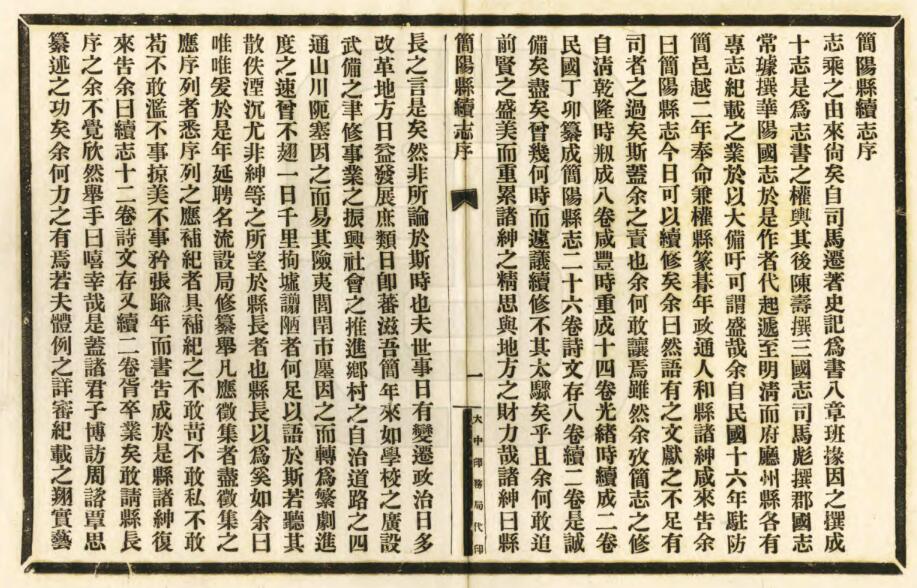 簡陽縣續志序
志乘之由來尙矣自司馬遷著史記爲書八章班掾因之撰成
十志是爲志書之權輿其後陳壽撰三國志司馬彪撰郡國志
常璩撰華陽國志於是作者代起遞至明淸而府廳州縣各有
專志紀載之業於以大備吁可謂盛哉余自民國十六年駐防
簡邑越二年奉命兼權縣篆暮年政通人和縣諸紳咸來告余
曰簡陽縣志今日可以續修矣余曰然語有之文獻之不足有
司者之過矣斯蓋余之責也余何敢讓焉雖然余攷簡志之修
自淸乾隆時刱成八卷咸豐時重成十四卷光緒時續成二卷
民國丁卯纂成簡陽縣志二十六卷詩文存八卷續二卷是誠
備矣盡矣曾幾何時而遽議續修不其太驟矣乎且余何敢追
前賢之盛美而重累諸紳之精思與地方之財力哉諸紳曰縣
簡陽縣續志序
一
大中印務局代印
長之言是矣然非所論於斯時也夫世事日有變遷政治日多
改革地方日益發展庶類日卽蕃滋吾簡年來如學校之廣設
武備之聿修事業之振興社會之推進鄉村之自治道路之四
通山川阨塞因之而易其險夷閭閈市廛因之而轉爲繁劇進
度之速曾不翅一日千里拘墟謭陋者何足以語於斯若聽其
散佚湮沉尤非紳等之所望於縣長者也縣長以爲奚如余曰
唯唯爰於是年延聘名流設局修纂舉凡應徵集者盡徵集之
應序列者悉序列之應補紀者具補紀之不敢苛不敢私不敢
苟不敢濫不事掠美不事矜張踰年而書告成於是縣諸紳復
來告余曰續志十二卷詩文存又續二卷胥卒業矣敢請縣長
序之余不覺欣然舉手曰嘻幸哉是蓋諸君子博訪周諮覃思
纂述之功矣余何力之有焉若夫體例之詳審紀載之翔實藝